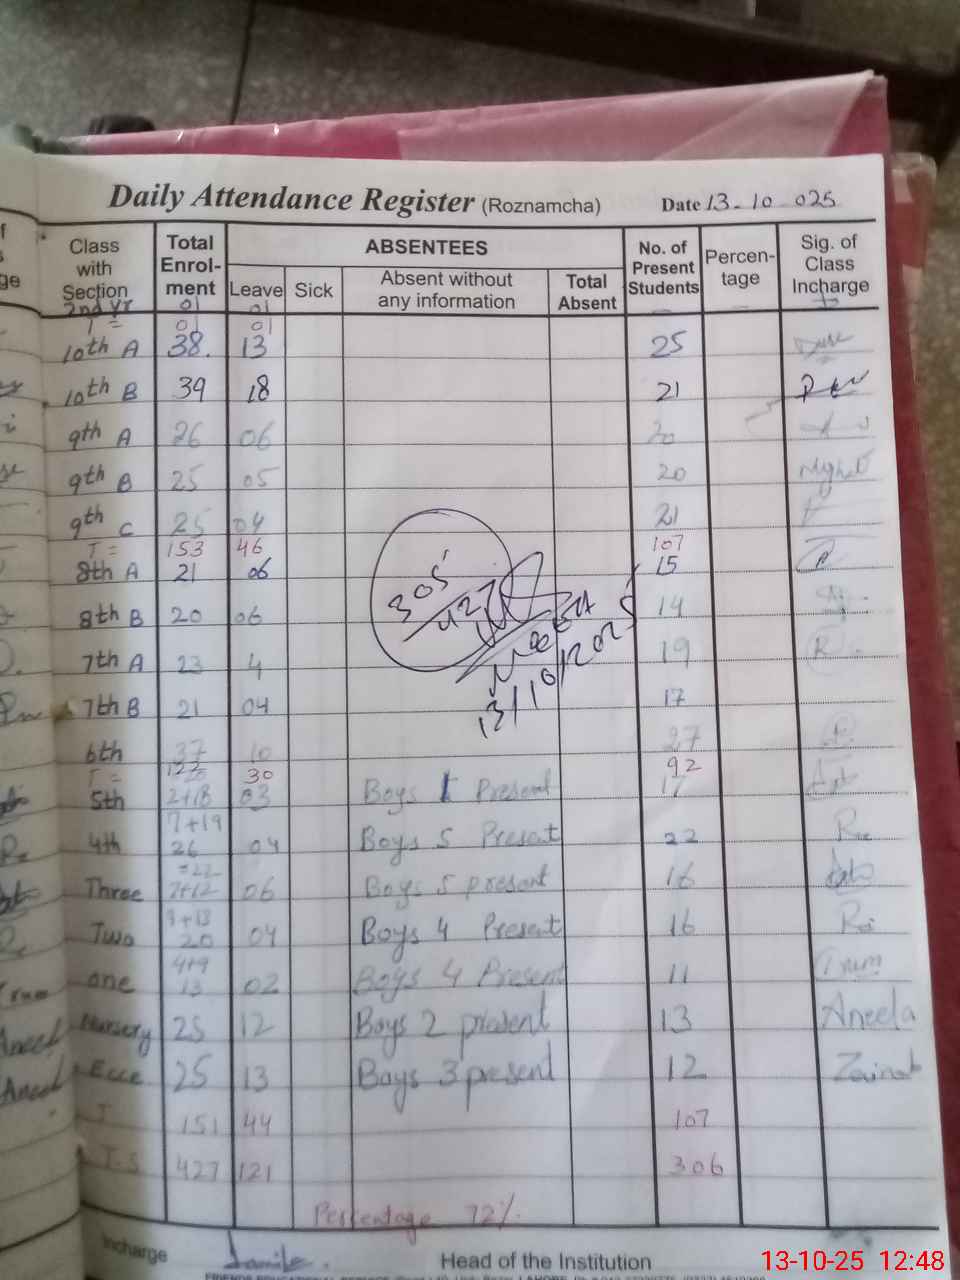 Daily Attendance Register (Roznamcha) Date 13-10-025
Class with Section | Total Enrolment | ABSENTEES | No. of Present Students | Percentage | Sig. of Class Incharge
Leave | Sick | Absent without any information | Total Absent
2nd yr 01 01
T = 01 01
10th A 38. 13 25
10th B 39 18 21
9th A 26 06 20
9th B 25 05 20
9th C 25 04 21
T = 153 46 107
8th A 21 06 15
8th B 20 06 14
7th A 23 4 19
7th B 21 04 17
6th 37 10 27
T = 122 30 92
5th 2+18 03 Boys Present 17
7+19
4th 26 04 Boys 5 Present 22
=22
Three 06 Boys 5 present 16
Two 20 04 Boys 4 Present 16
4+9
one 13 02 Boys 4 Present 11
Nursery 25 12 Boys 2 present 13 Aneela
Ecce 25 13 Boys 3 present 12 Zainab
T 151 44 107
T.S 427 121 306
Percentage 72%.
305
427
13/10/2025
Incharge Head of the Institution
13-10-25 12:48